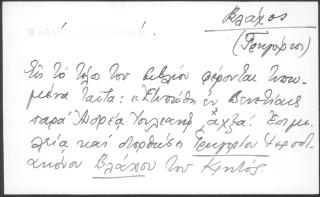 Βλάχος
(Γρηγόριος)
Εἰς τὸ τέλος τοῦ βιβλίου φέρονται τυπω-
μένα ταῦτα: «Ἐτυπώθη ἐν Βενετίαις
παρὰ Ἀνδρέᾳ Ἰουλιανῷ ͵αχξα! Ἐπιμε-
λείᾳ καὶ διορθώσει Γρηγορίου Ἱεροδι-
ακόνου Βλάχου τοῦ Κρητός.